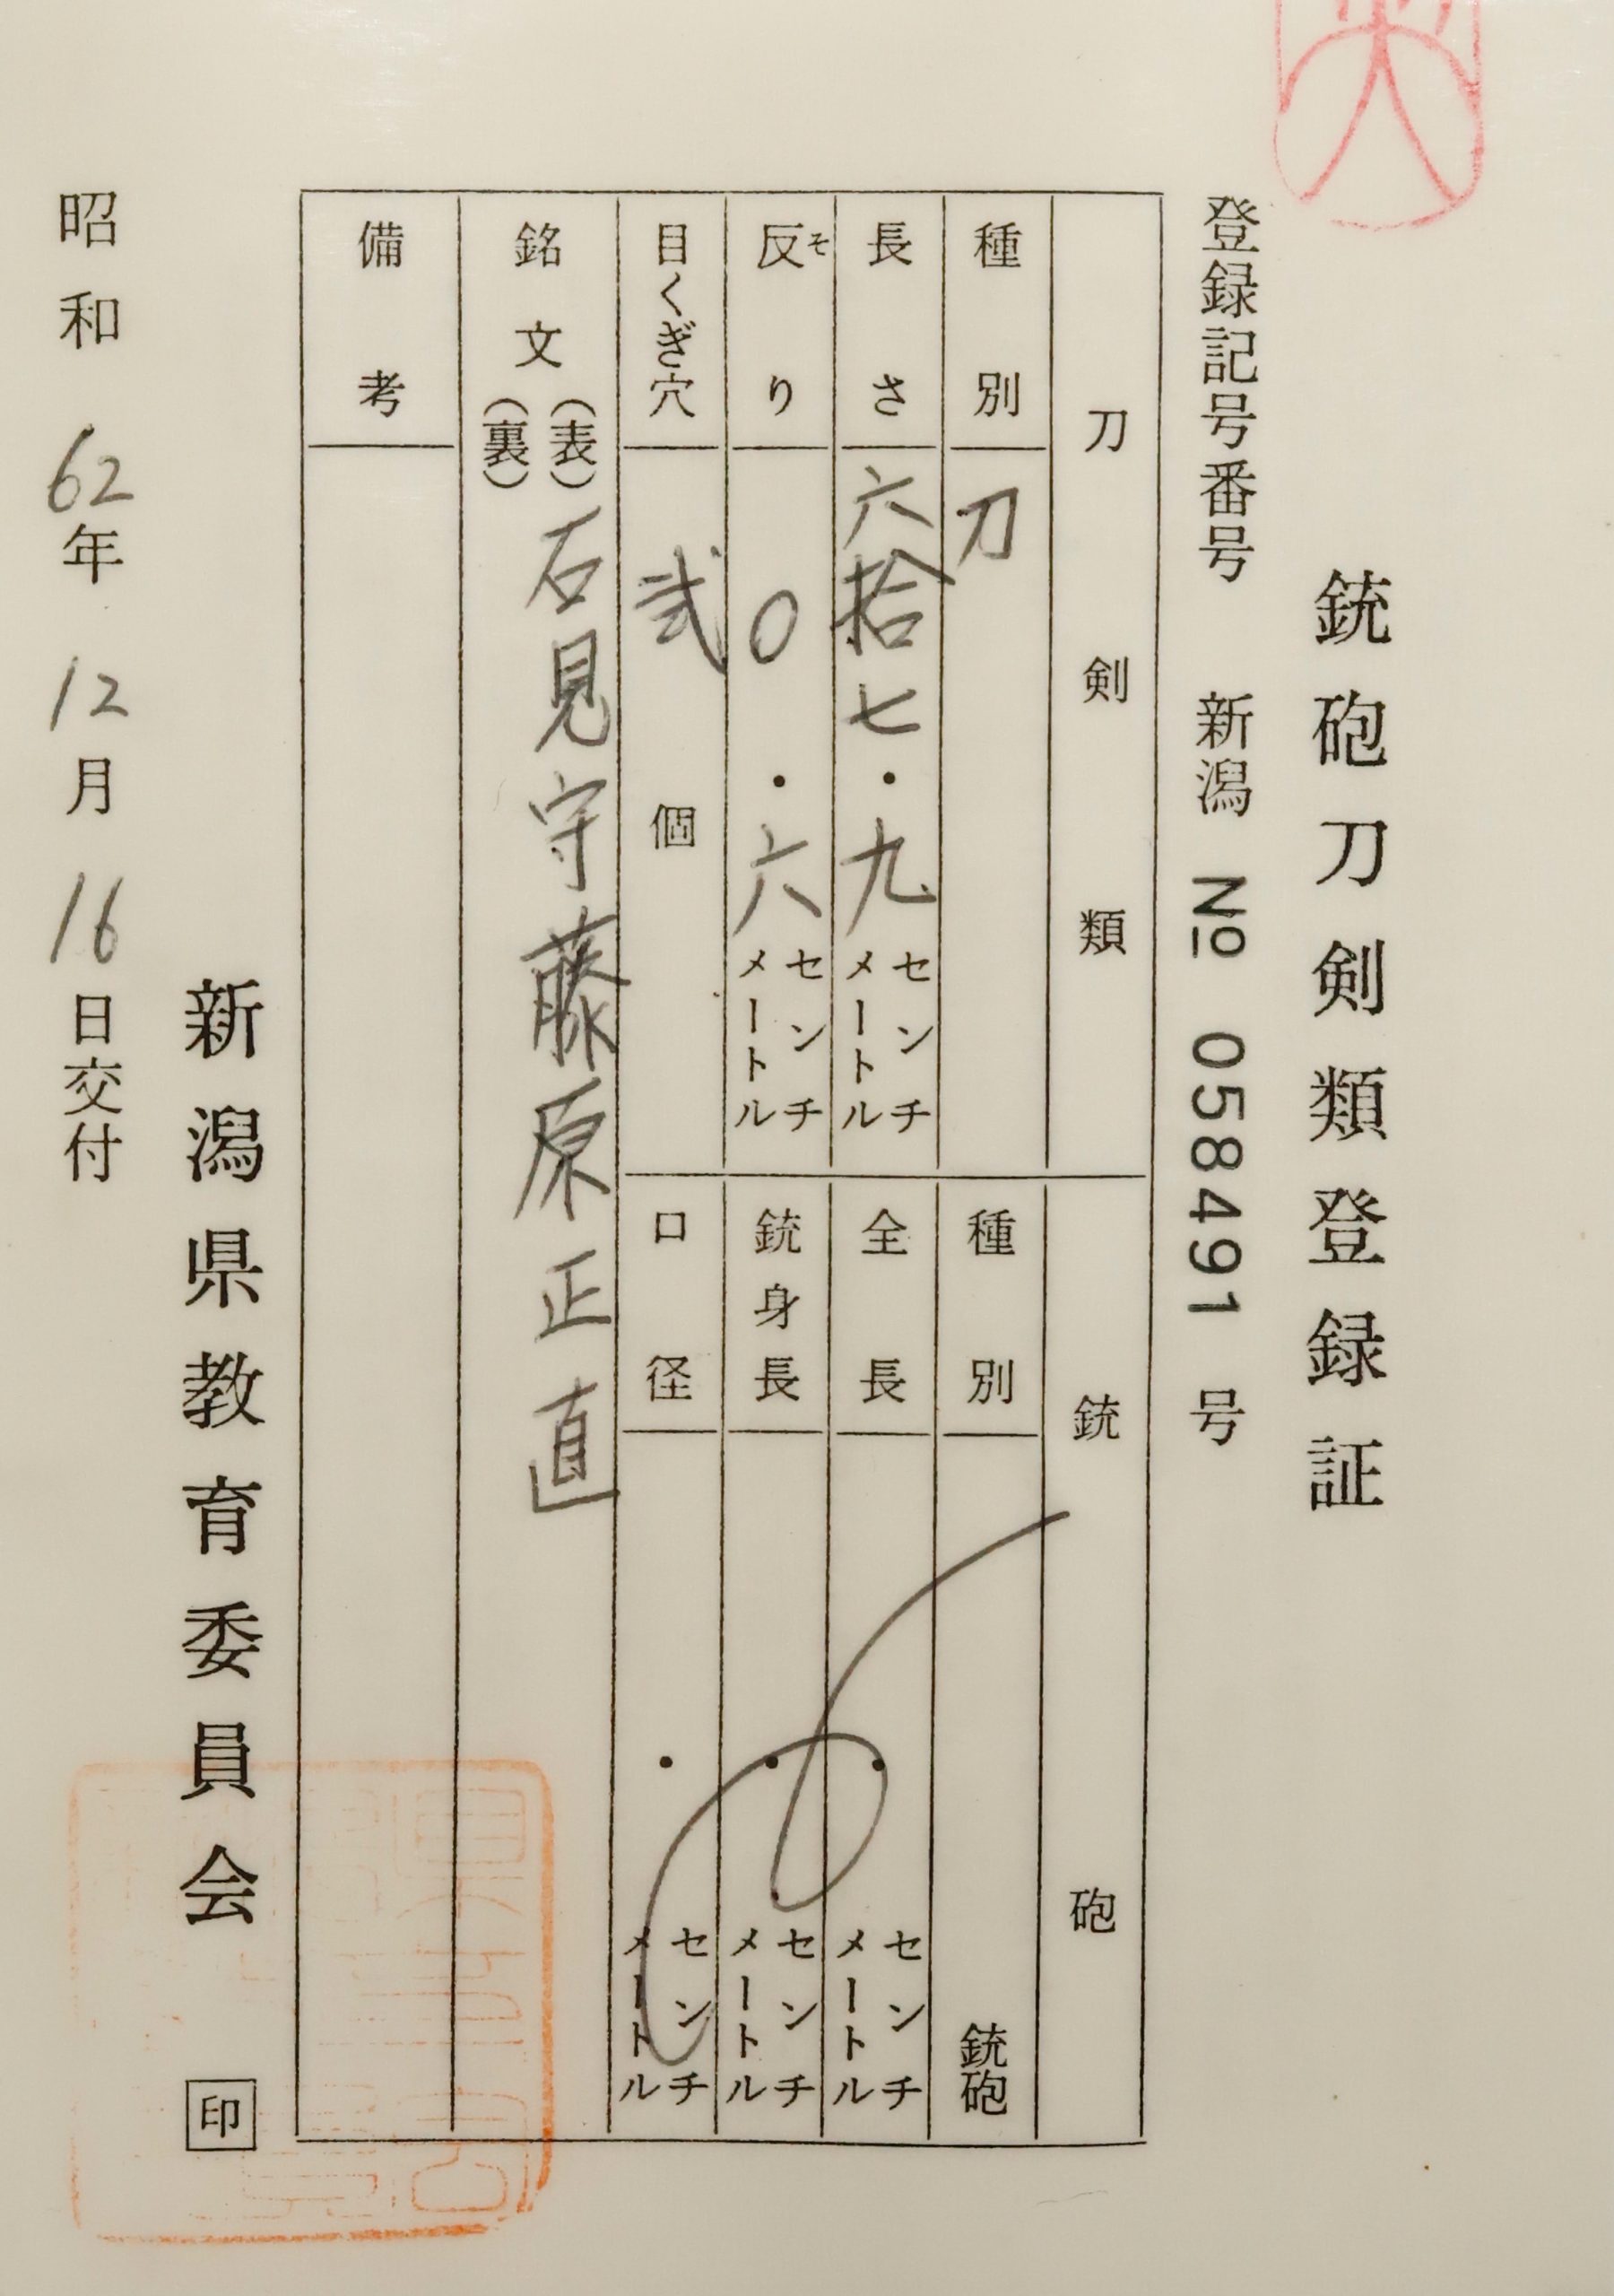 銃砲刀剣類登録証
登録記号番号 新潟 № 058491 号
刀剣類
種別 刀
長さ 六拾七・九 センチメートル
反り 〇・六 センチメートル
そ
目くぎ穴 弐個
銃砲
種別 銃砲
全長 ・ センチメートル
銃身長 ・ センチメートル
口径 ・ センチメートル
銘文 (表) 石見守藤原正直
(裏)
備考
新潟県教育委員会 印
昭和62年12月16日交付